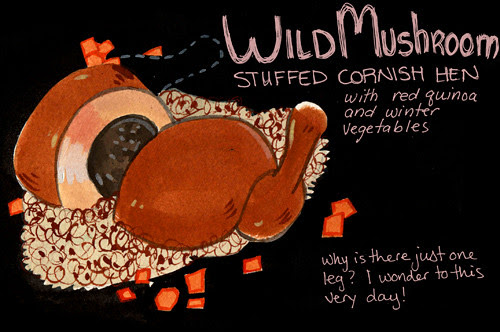 WILD MUSHROOM
STUFFED CORNISH HEN
with red quinoa
and winter
vegetables
why is there just one
leg? I wonder to this
very day!